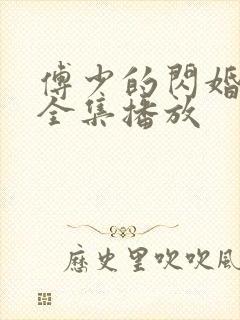 傅少的閃婚
全集播放
歷史里吹吹風